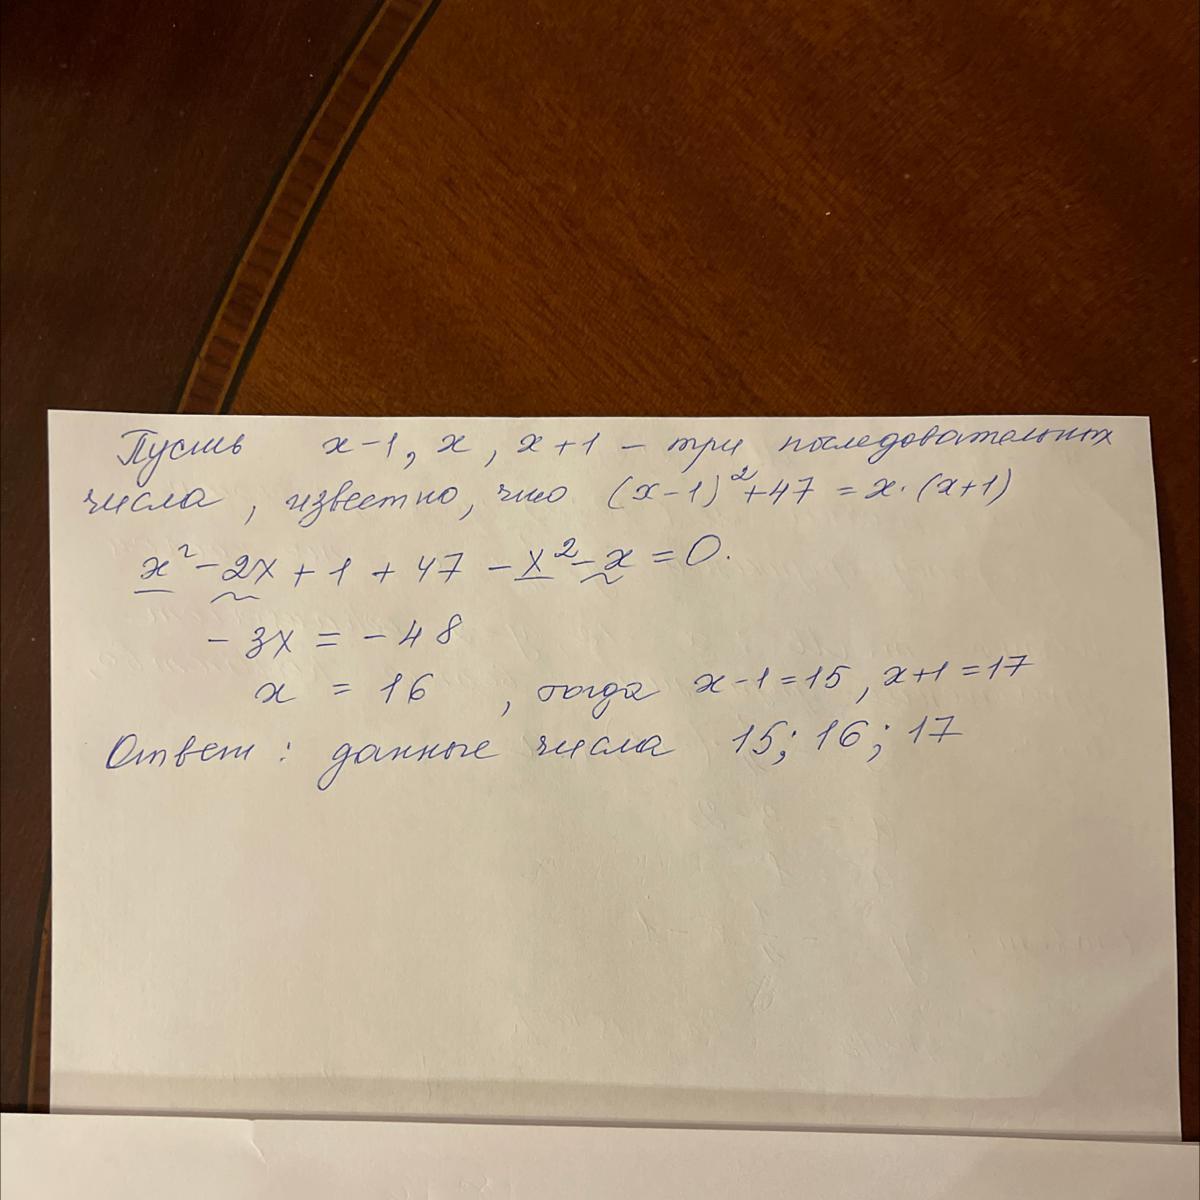 Пусть x-1, x, x+1 - три последовательных
числа, известно, что (x-1)²+47 = x·(x+1)
x² - 2x + 1 + 47 - x² - x = 0.
- 3x = - 48
x = 16 , тогда x-1=15, x+1=17
Ответ: данные числа 15; 16; 17